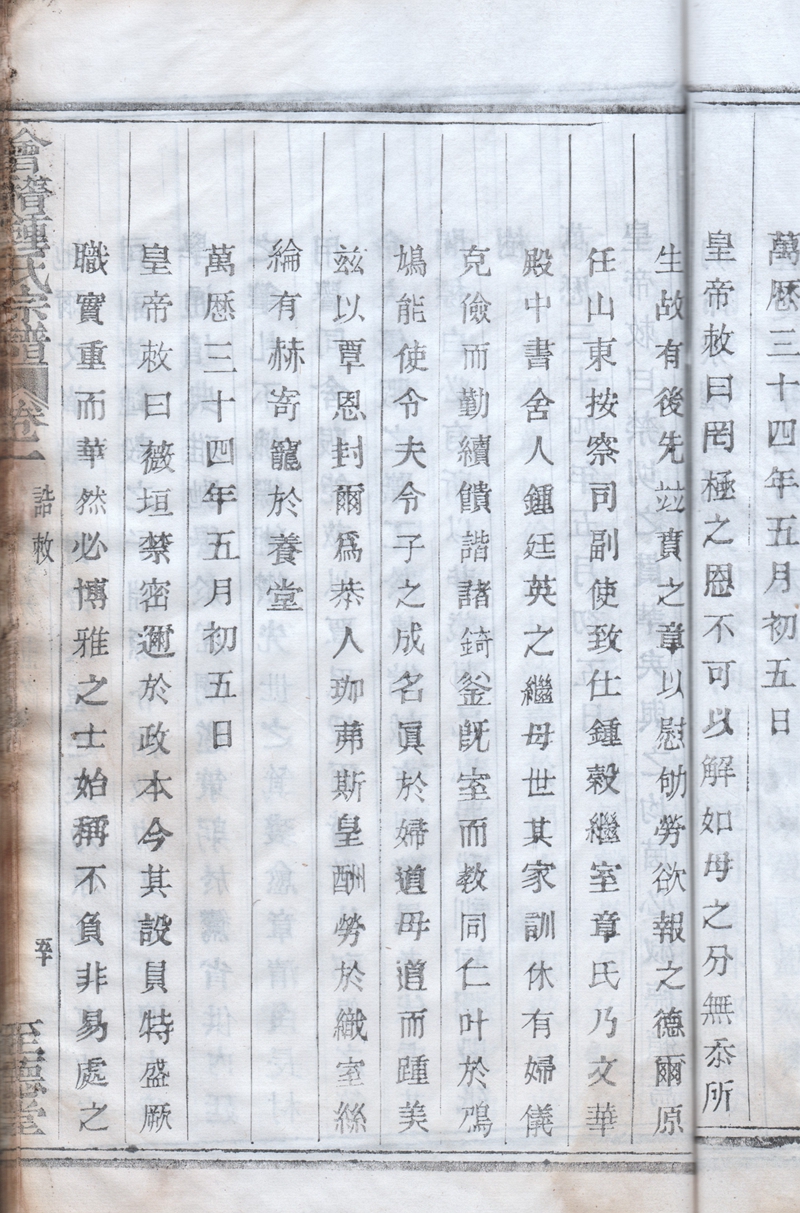 萬厯三十四年五月初五日
皇帝敕曰罔極之恩不可以解如母之分無忝所
生故有後先竝賁之章以慰劬勞欲報之德爾原
任山東按察司副使致仕鍾榖繼室章氏乃文華
殿中書舍人鍾廷英之繼母世其家訓休有婦儀
克儉而勤續饋諧諸錡釜旣室而教同仁叶於鳲
鳩能使令夫令子之成名眞於婦道母道而踵美
兹以覃恩封爾爲恭人珈茀斯皇酬勞於織室絲
綸有赫寄寵於養堂
萬厯三十四年五月初五日
皇帝敕曰薇垣禁密邇於政本今其設員特盛厥
職實重而華然必博雅之士始稱不負非易處之
會稽鍾氏宗譜 卷一 誥敕 至德堂